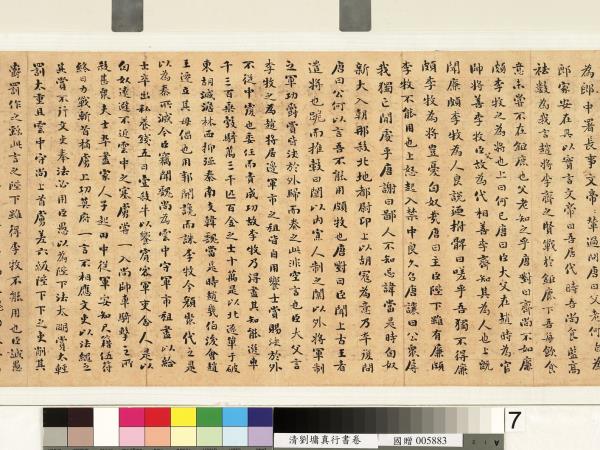 為郎中署長事文帝=輦過問唐曰父老何自為
郎家安在具以實言文帝曰吾居代時吾尚食監高
祛數為我言趙將李齊之賢戰於鉅鹿下吾每飲食
意未嘗不在鉅鹿也父老知之乎唐對曰齊尚不如廉
頗李牧之為將也上曰何已唐曰臣大父在趙時為官
帥將善李牧臣父故為代相善李齊知其為人也上既
聞廉頗李牧為人良說迺拊髀曰嗟乎吾獨不得廉
頗李牧為將豈憂匈奴哉唐曰主臣陛下雖有廉頗
李牧不能用也上怒起入禁中良久召唐讓曰公衆辱
我獨亡閒處乎唐謝曰鄙人不知忌諱當是時匈奴
新大入朝那殺北地都尉卬上以胡寇為意乃卒復問
唐曰公何以言吾不能用頗牧也唐對曰臣聞上古王者
遣將也跪而推轂曰閫以內寡人制之閫以外將軍制
之軍功爵賞皆決於外歸而奏之此非空言也臣大父言
李牧之為趙將居邊軍市之租皆自用饗士賞賜決於外
不從中覆也委任而責成功故李牧乃得盡其知能選車
千三百乘彀騎萬三千匹百金之士十萬是以北逐單于破
東胡滅澹林西抑彊秦南支韓魏當是時趙幾伯後會趙
王遷立其母倡也用郭開讒而誅李牧令顏聚代之是
以為秦所滅今臣竊聞魏尚為雲中守軍市租盡以給
士卒出私養錢五日壹殺牛以饗賓客軍吏舍人是以
匈奴遠避不近雲中之塞虜嘗一入尚帥車騎擊之所
殺甚衆夫士卒盡家人子起田中從軍安知尺籍伍符
終日力戰斬首捕虜上功莫府一言不相應文吏以法繩之
其賞不行文吏奉法必用臣愚以為陛下法太明賞太輕
罰太重且雲中守尚上首虜差六級陛下下之吏削其
爵罰作之繇此言之陛下雖得李牧不能用也臣誠愚
7
清劉墉真行書卷
國贈 005883